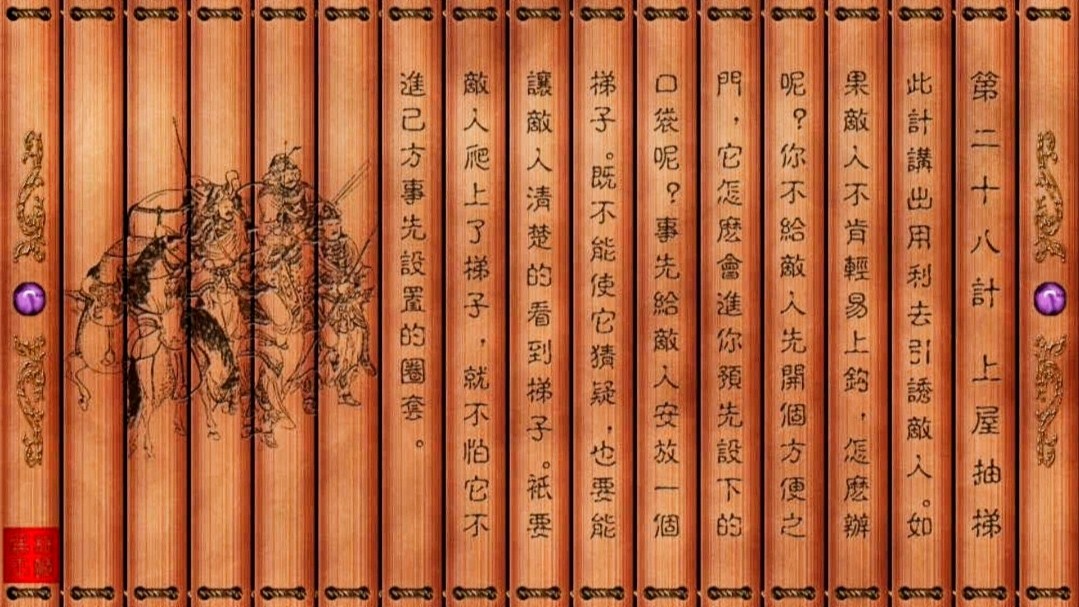 第二十八計 上屋抽梯
此計講出用利去引誘敵人。如
果敵人不肯輕易上鈎，怎麽辦
呢？你不給敵人先開個方便之
門，它怎麽會進你預先設下的
口袋呢？事先給敵人安放一個
梯子。既不能使它猜疑，也要能
讓敵人清楚的看到梯子。衹要
敵人爬上了梯子，就不怕它不
進己方事先設置的圈套。